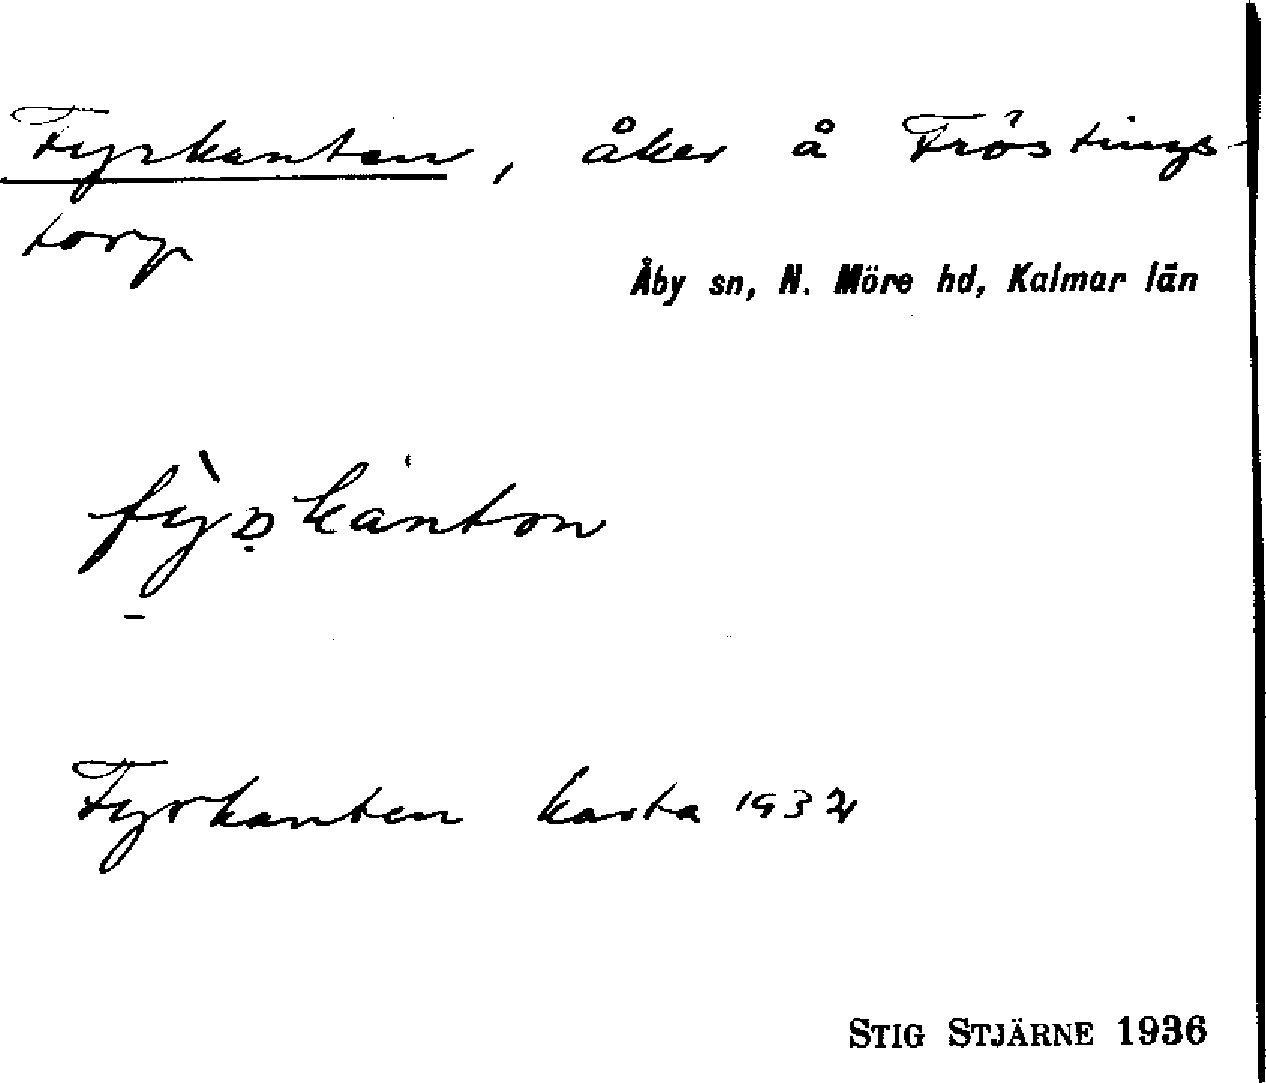 Fyrkanten, åker å Fröstings-
torp
Åby sn, N. Möre hd, Kalmar län
Fyrkanten karta 1934
STIG STJÄRNE 1936